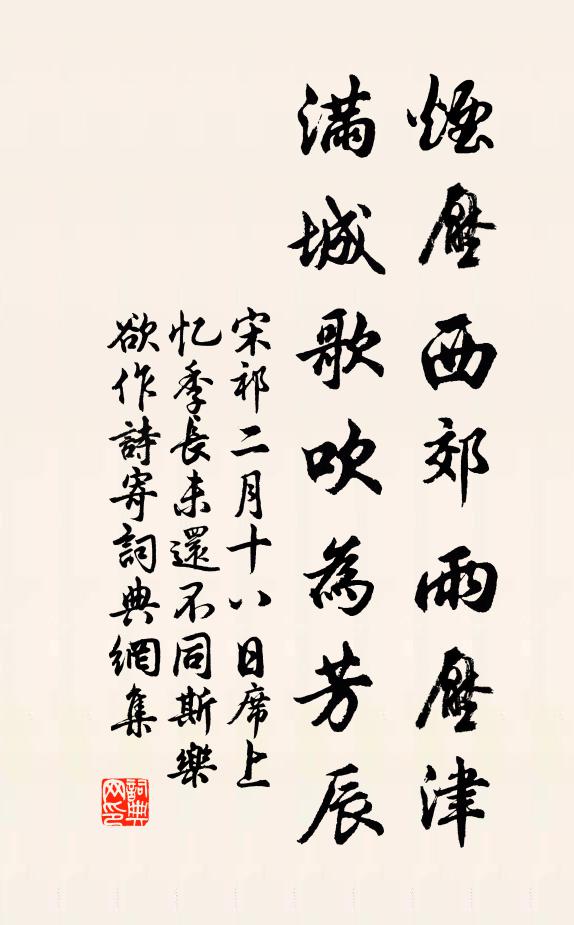 煙壓西郊雨壓津
滿城歌吹為芳辰
宋祁二月十八日席上
忆季長未還不同斯樂
欲作詩寄詞典網集
詞典
网印